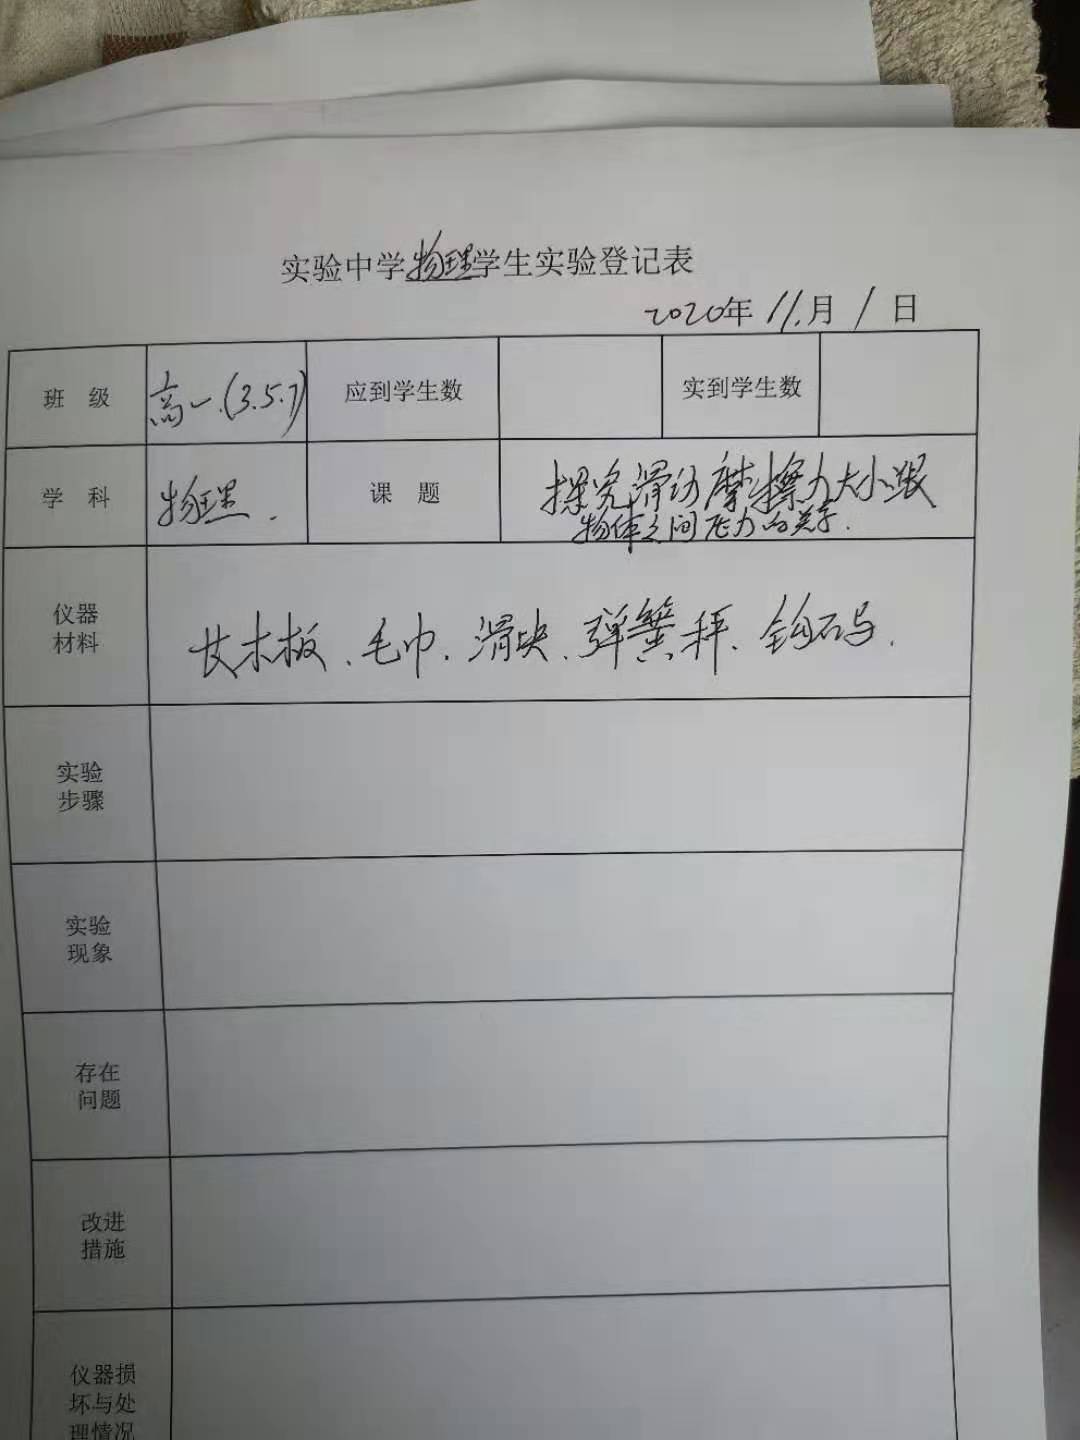 实验中学物理学生实验登记表
2020年 11.月 1 日
班 级 高一.(3.5.7) 应到学生数 实到学生数
学 科 物理. 课 题 探究滑动摩擦力大小跟
物体之间压力的关系.
仪器
材料
长木板、毛巾、滑块、弹簧秤、钩码.
实验
步骤
实验
现象
存在
问题
改进
措施
仪器损
坏与处
理情况